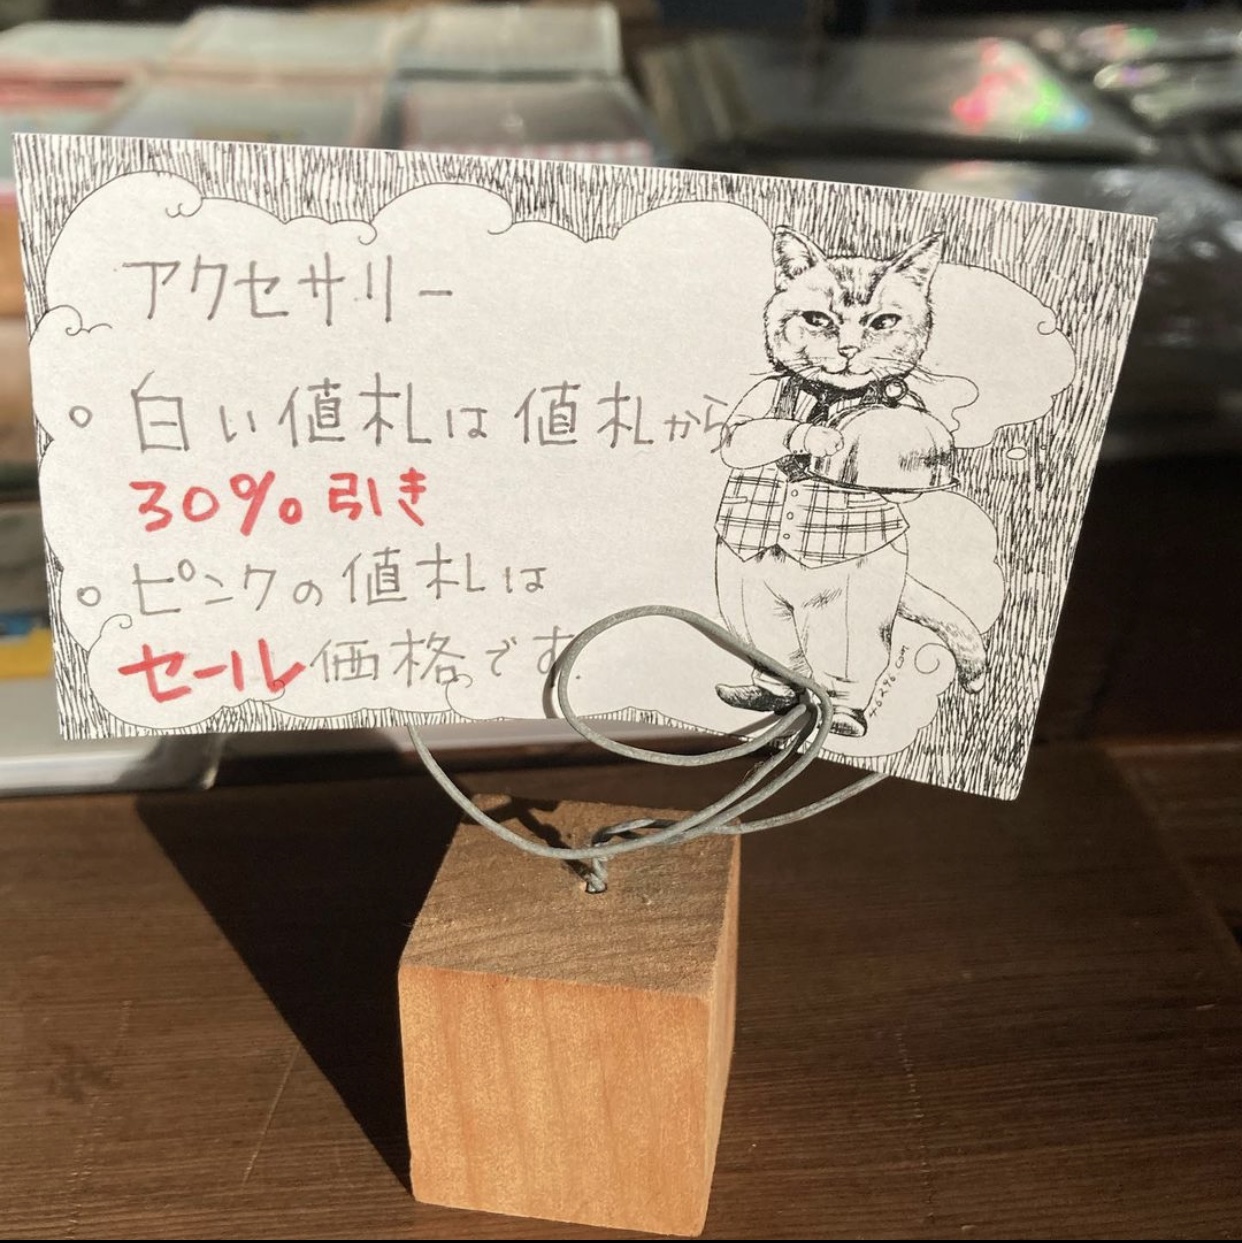 アクセサリー
○ 白い値札は値札から
30%引き
○ ピンクの値札は
セール価格です.